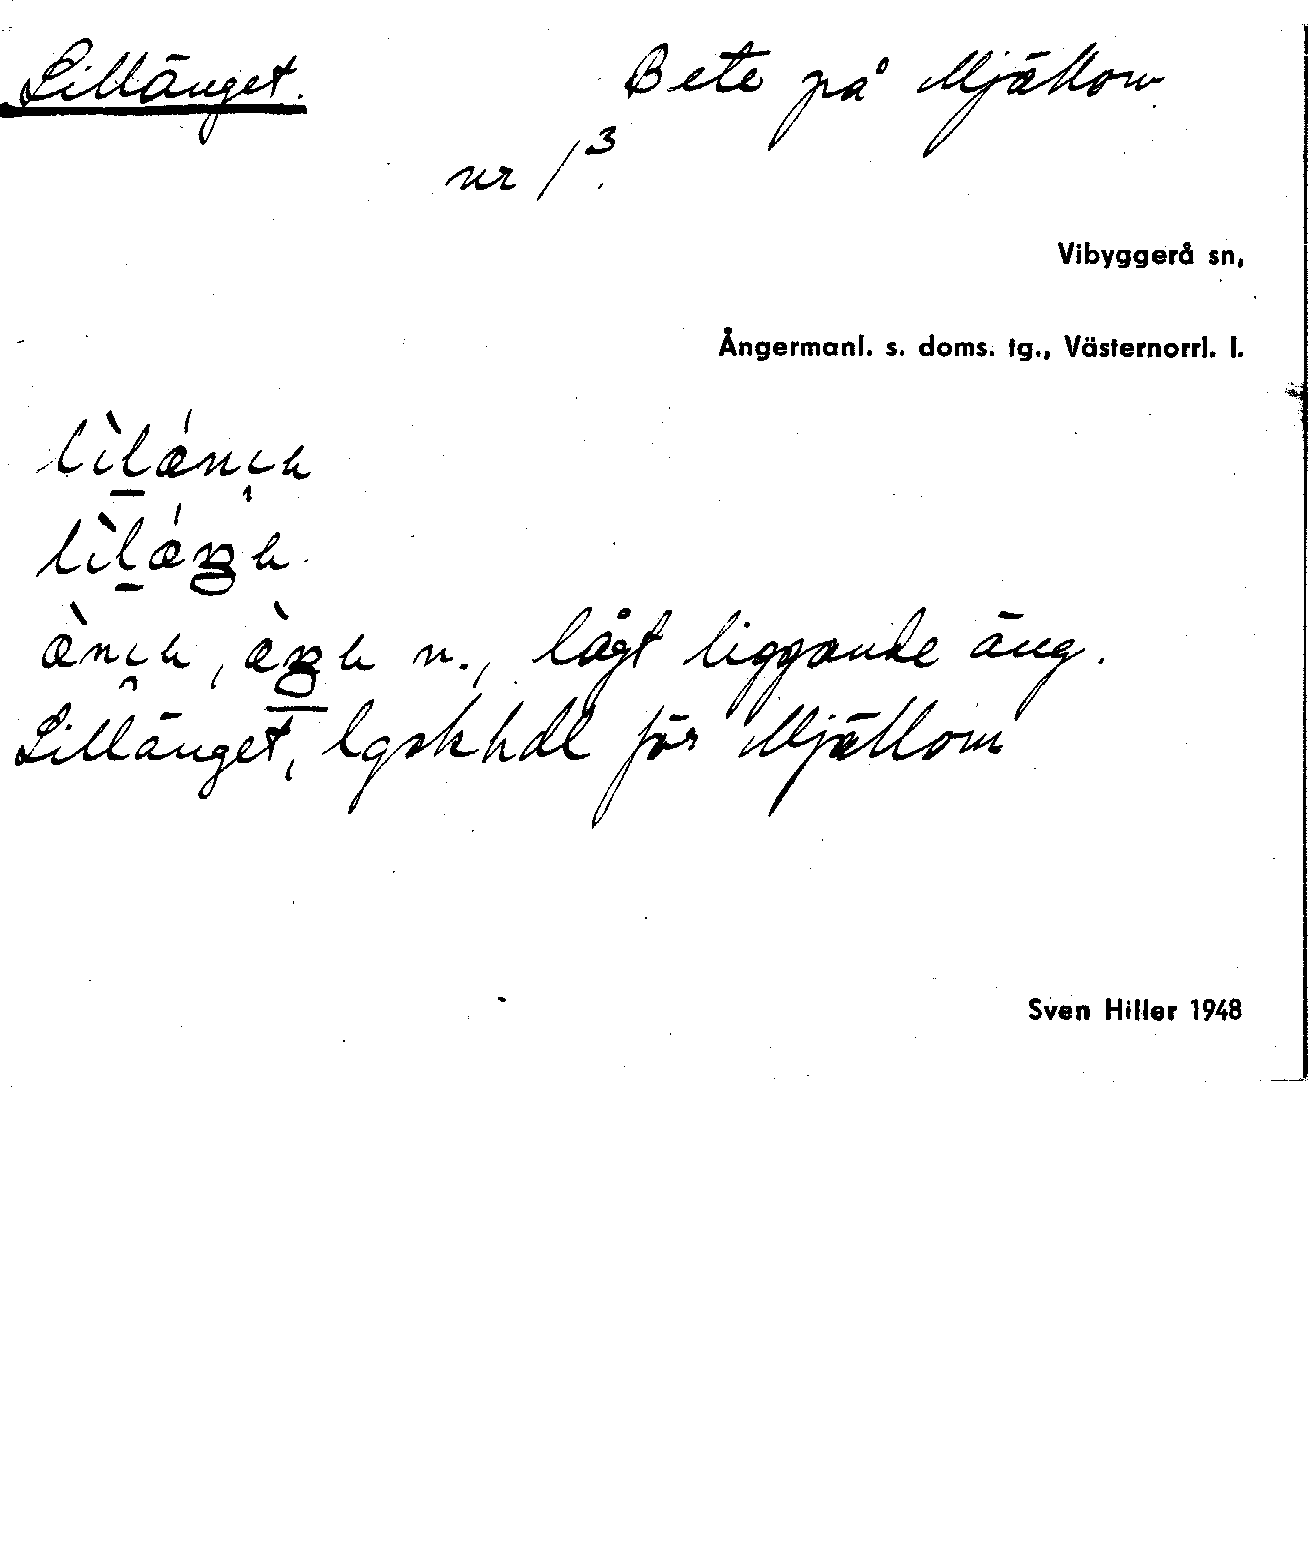 Lillänget. Bete på Mjällom
nr 1³.
Vibyggerå sn,
Ångermanl. s. doms. tg., Västernorrl. l.
n., lågt liggande äng.
Lillänget, lgskhdl för Mjällom
Sven Hiller 1948